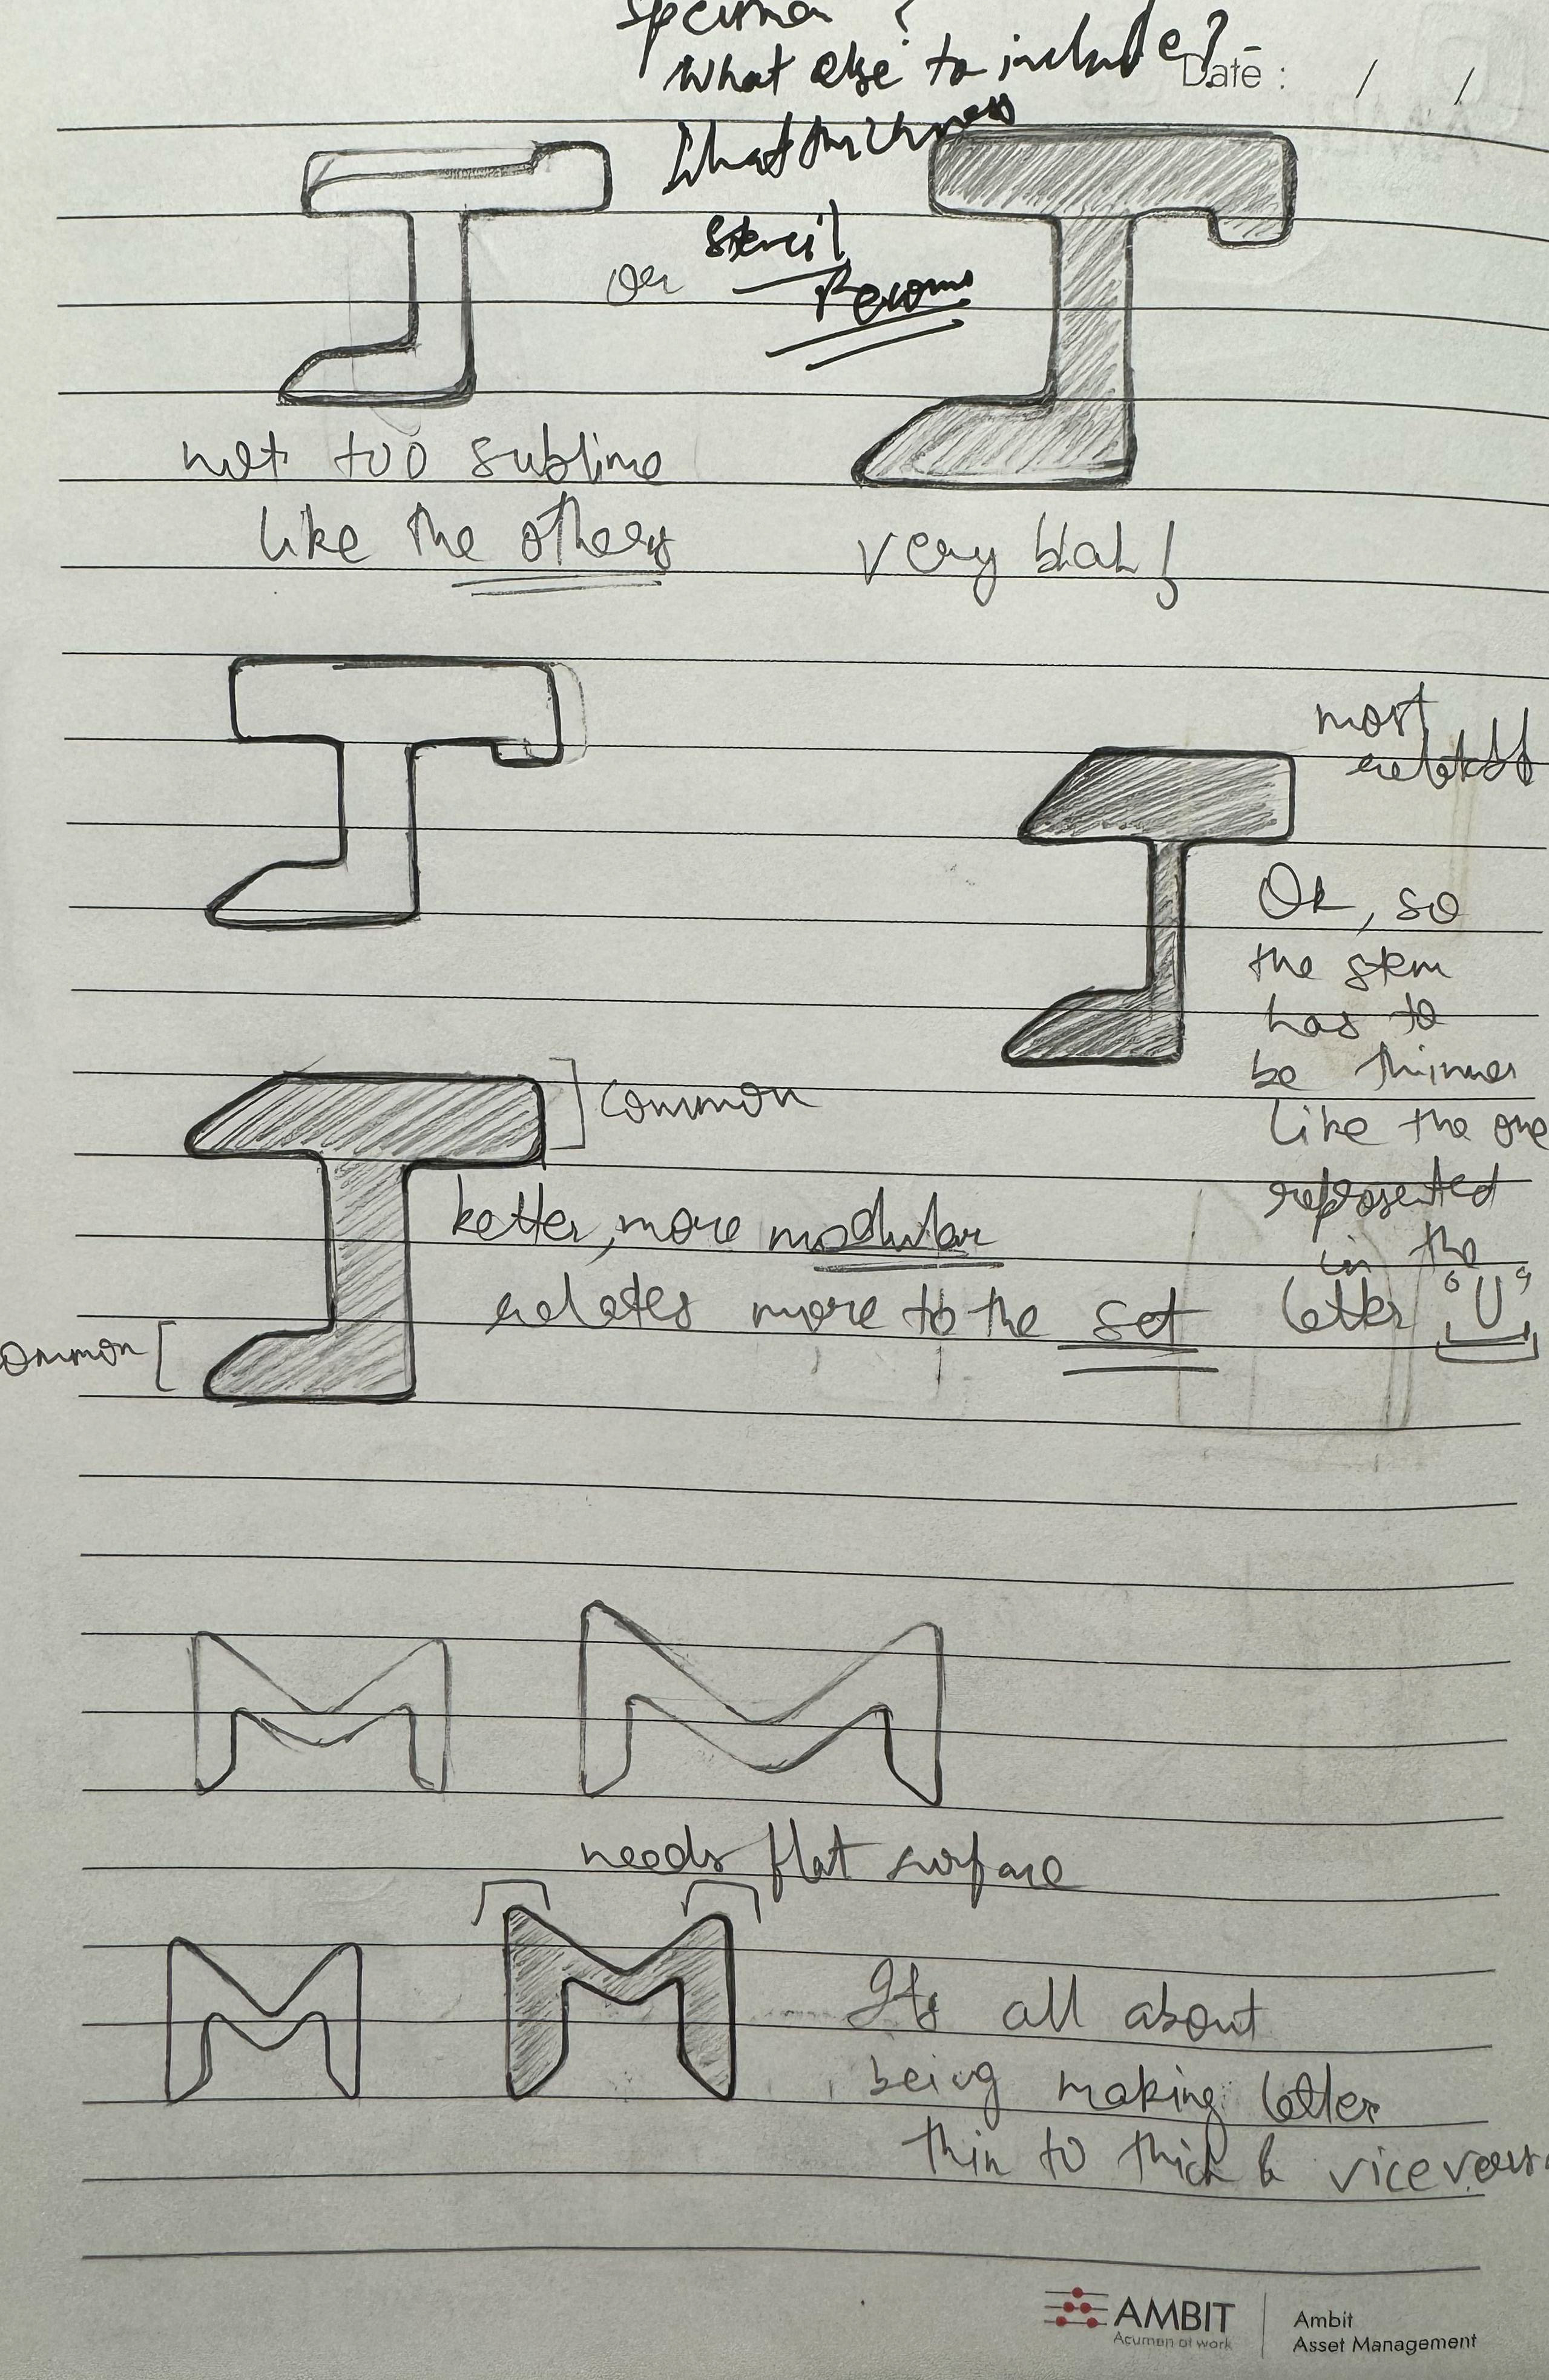 specimen ?
What else to include? -
Date : / /
What thickness
Stencil
or
not too sublime
like the others
very blah!
most
Ok, so
the stem
has to
be thinner
like the one
represented
in the
letter "U"
common
better, more modular
relates more to the set
common
needs flat surface
Its all about
being making letter
thin to thick & vice versa
AMBIT
Acumen at work
Ambit
Asset Management